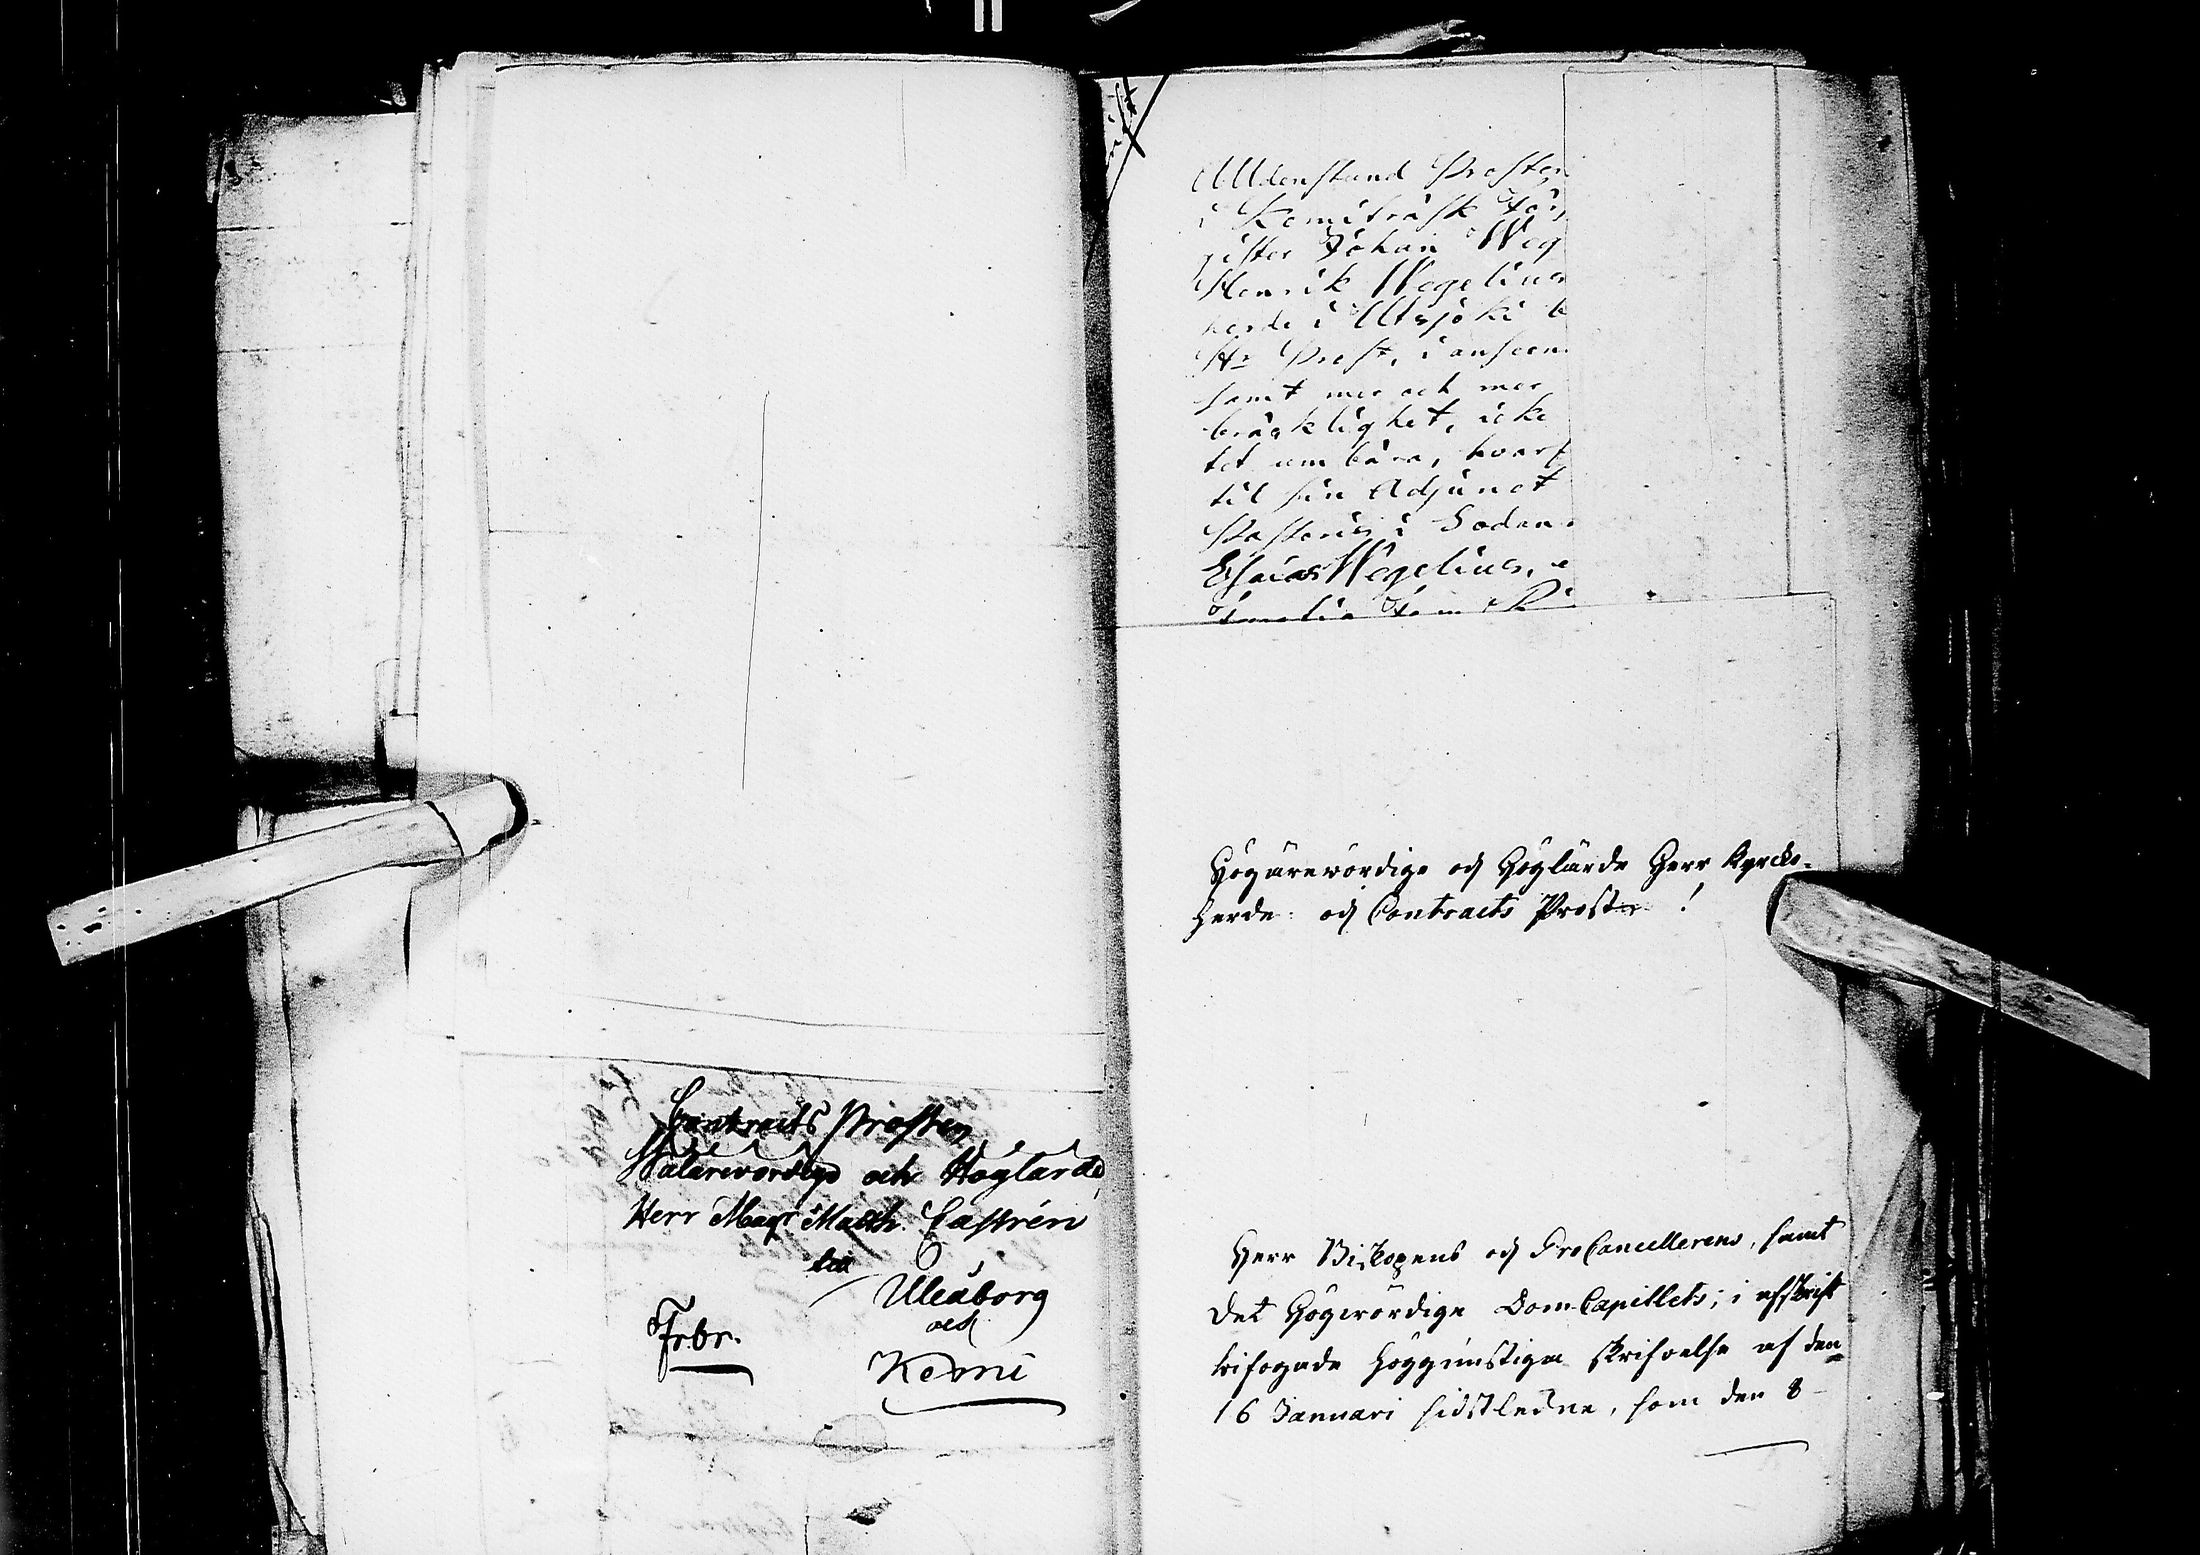 Contracts Prosten
Wälärevördige och Höglärde
Herr Magr Matth. Castrén
till
Uleåborg
och
Kemi
Frbr.
Alldenstund Prosten
i Kemiträsk
gister Johan Weg
Henrik Wegelius
herde i Utsjoki b
Hr Prost, i anseen
samt mer och mer
bräcklighet, icke
tet umbära, hvarf
til sin Adjunct
Pastoris i Sodan
Esaias Wegelius, e
Högärewördige och Höglärde Herr Kyrcko-
herde och Contracts Prost !
Herr Biskopens och ProCancellerens, samt
Det Högwördige Dom-Capitlets, i afskrift
bifogade höggunstiga skrifvelse af den
16 Januari sidstledne, som den 8